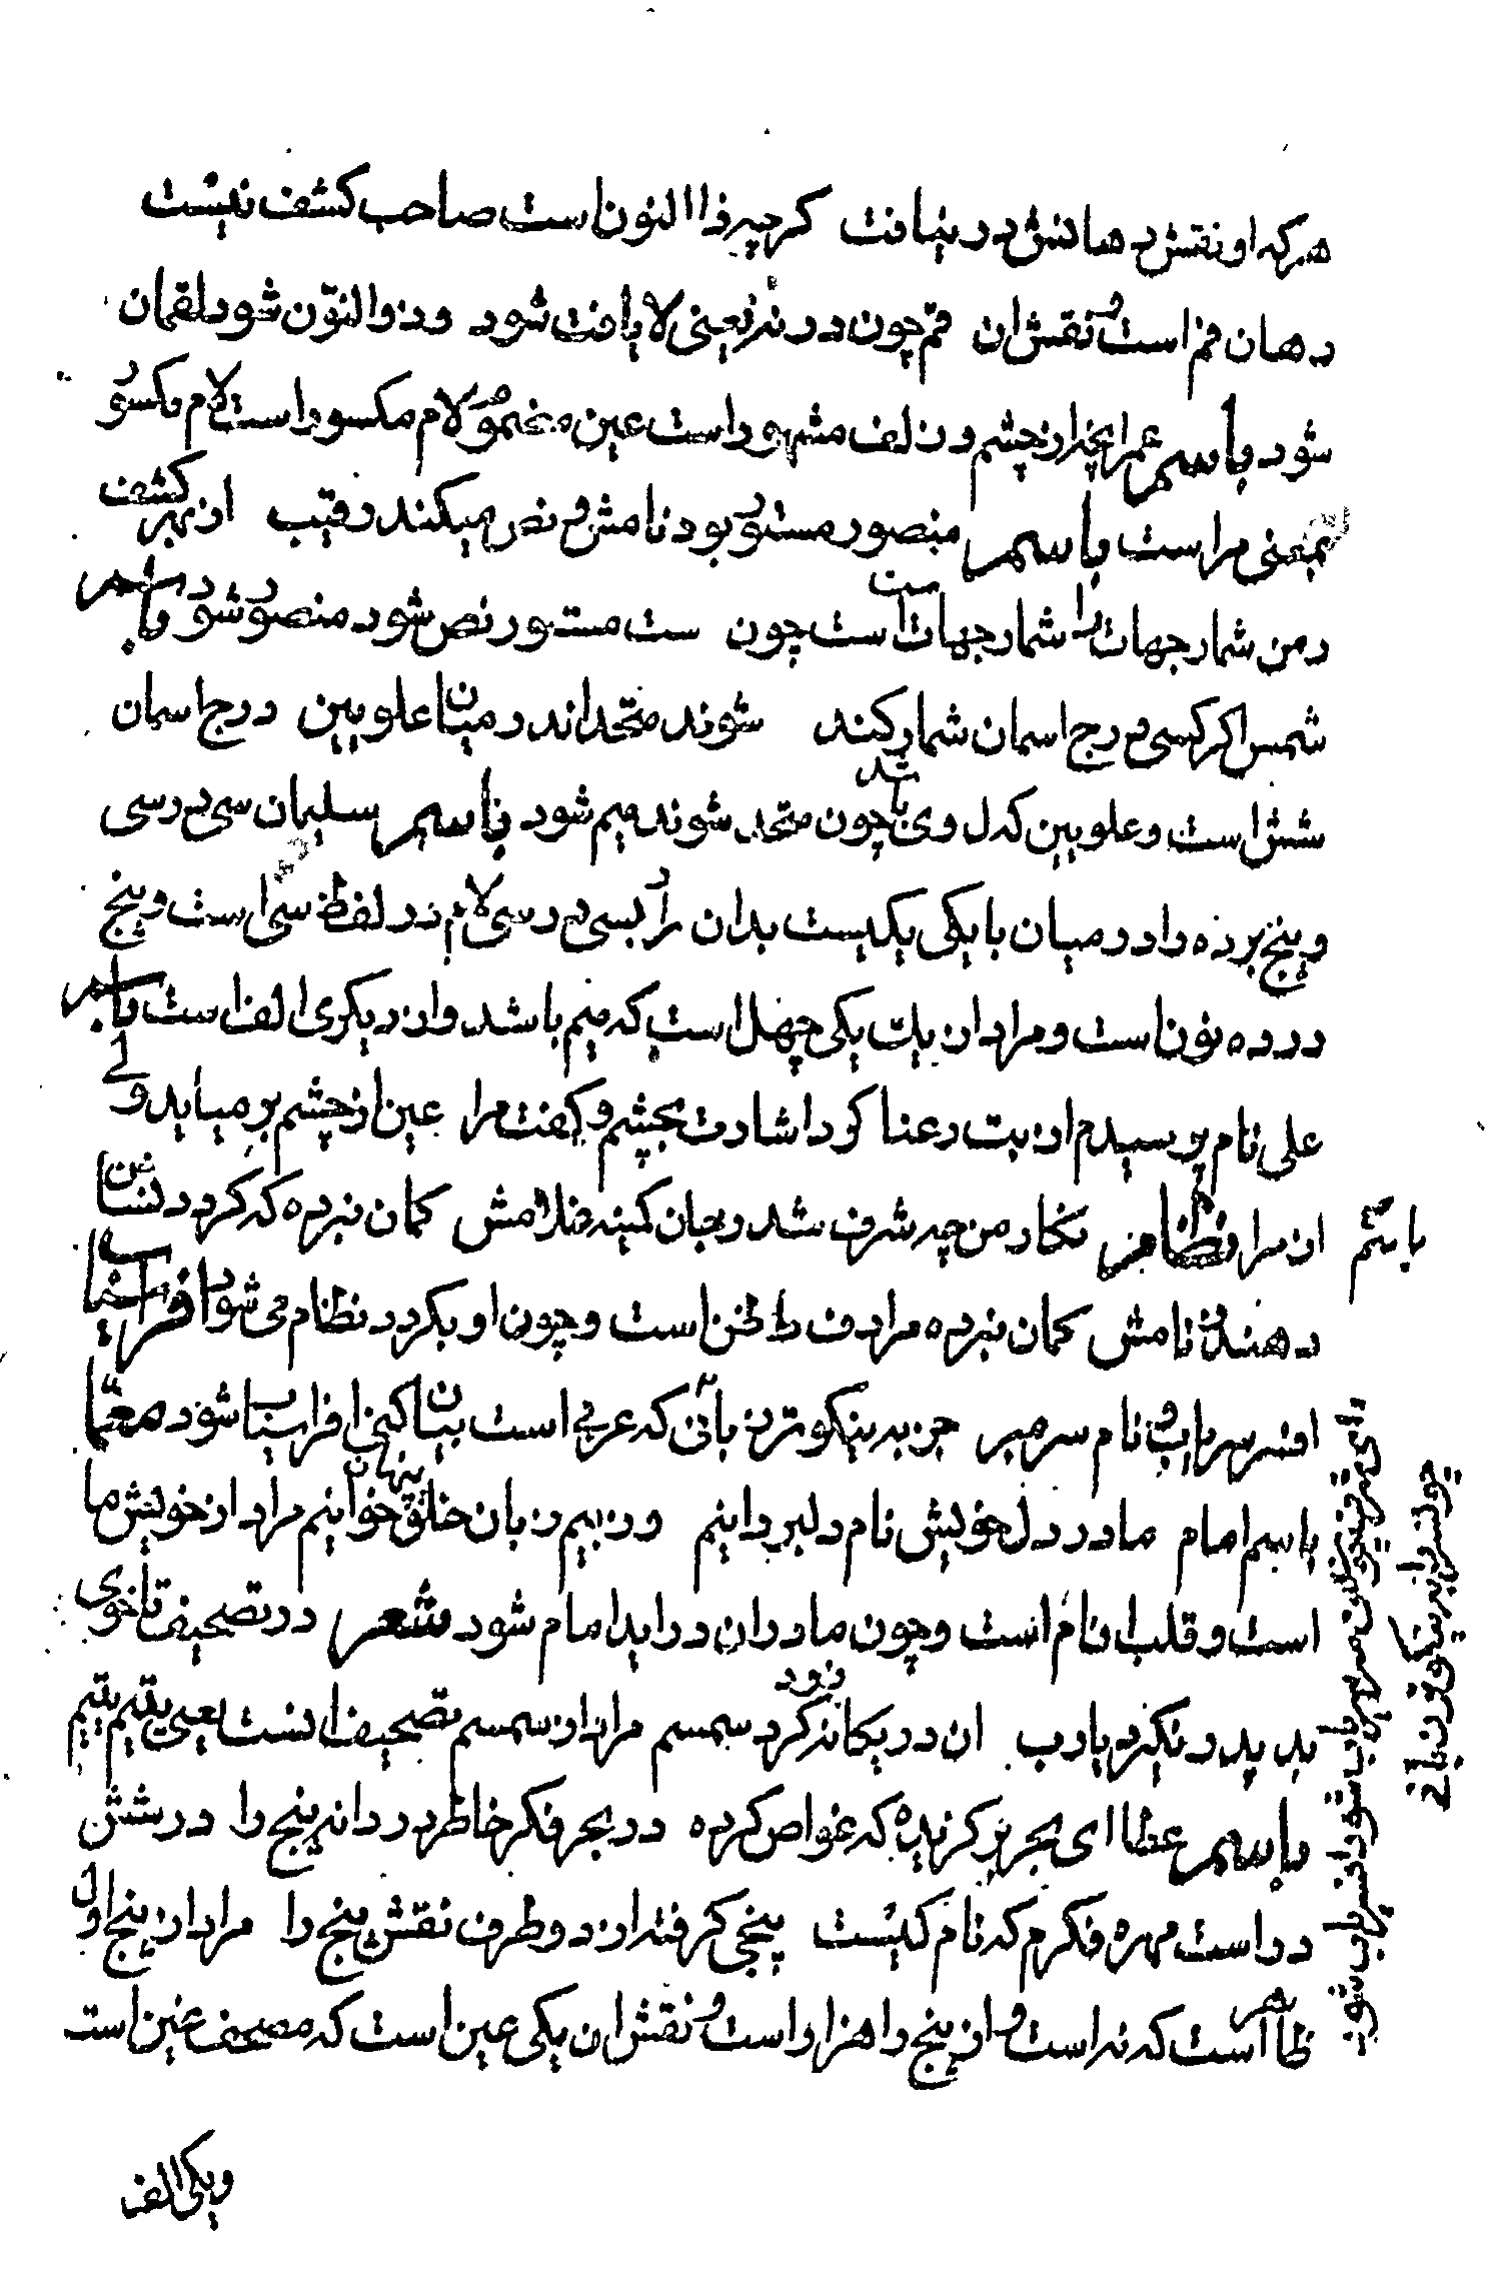 هر که او نقش دهانش در نیافت کرچه ذا النون است صاحب کشف نیست
دهان فم است و نقش ان قم چون در نه یعنی لا یافت شود و ذوالنون شود لقمان
شود باسم عمر انچه از چشم و زلف مشهور است عین مضموم و لام مکسور است لام مکسور
بمعنی مر است باسم منصور مستور بود نامش و نص میکند رقیب از بهر کشف
رمن شمار جهات را شمار جهات ست است چون ست مستور نص شود منصور شود باسم
شمس اکر کسی درج اسمان شمار کند شوند متحد اندر میان علویین درج اسمان
شش است و علویین که ل وی باشد چون متحد شوند میم شود باسم سلیمان سی در سی
و پنج بر ده را در میان با یکی یکیست بدان را بسی در سی لام در لفظ سی است و پنج
در ده نون است و مراد از یک یکی چهل است که میم باشد و از دیکری الف است باسم
علی نام پرسیدم از بت رعنا کرد اشارت بچشم و کفت مرا عین از چشم بر میاید و لی
از مرا نظام نکار من چه شرف شد رجان کمینه غلامش کمان نبرده که کردد نشان
دهنده نامش کمان نبرده مرادف دال ظن است و چون او بکردد نظام می شود افراسیاب
افسر سراب و نام سرمیر جز به نیکوتر زبانی که عربی است بیان کنی افراسیاب شود معما
باسم امام ما در دل خویش نام دلبر دانیم وز بیم زبان خلق پنهان خوانیم مراد از خویش ما
است و قلب ان نام است و چون ما دران دراید امام شود شعر در تصحیف تا خوی
بد پدر نکیرد یارب ان در یکانه کردد زود سمسم مراد از سمسم تصحیف انست یعنی یتیم یتیم
باسم عطا ای بحر بر کزیده که غواص کرده در بحر فکر خاطر دردانه پنج را در شش
در است مهره فکرم که نام کیست پنجی کرفته از دو طرف نقش پنج را مراد از پنج اول
ظاهر است که نه است و از پنج را هزار است و نقش ان یکی عین است که مصحف غین است
ویکی الف
باسم